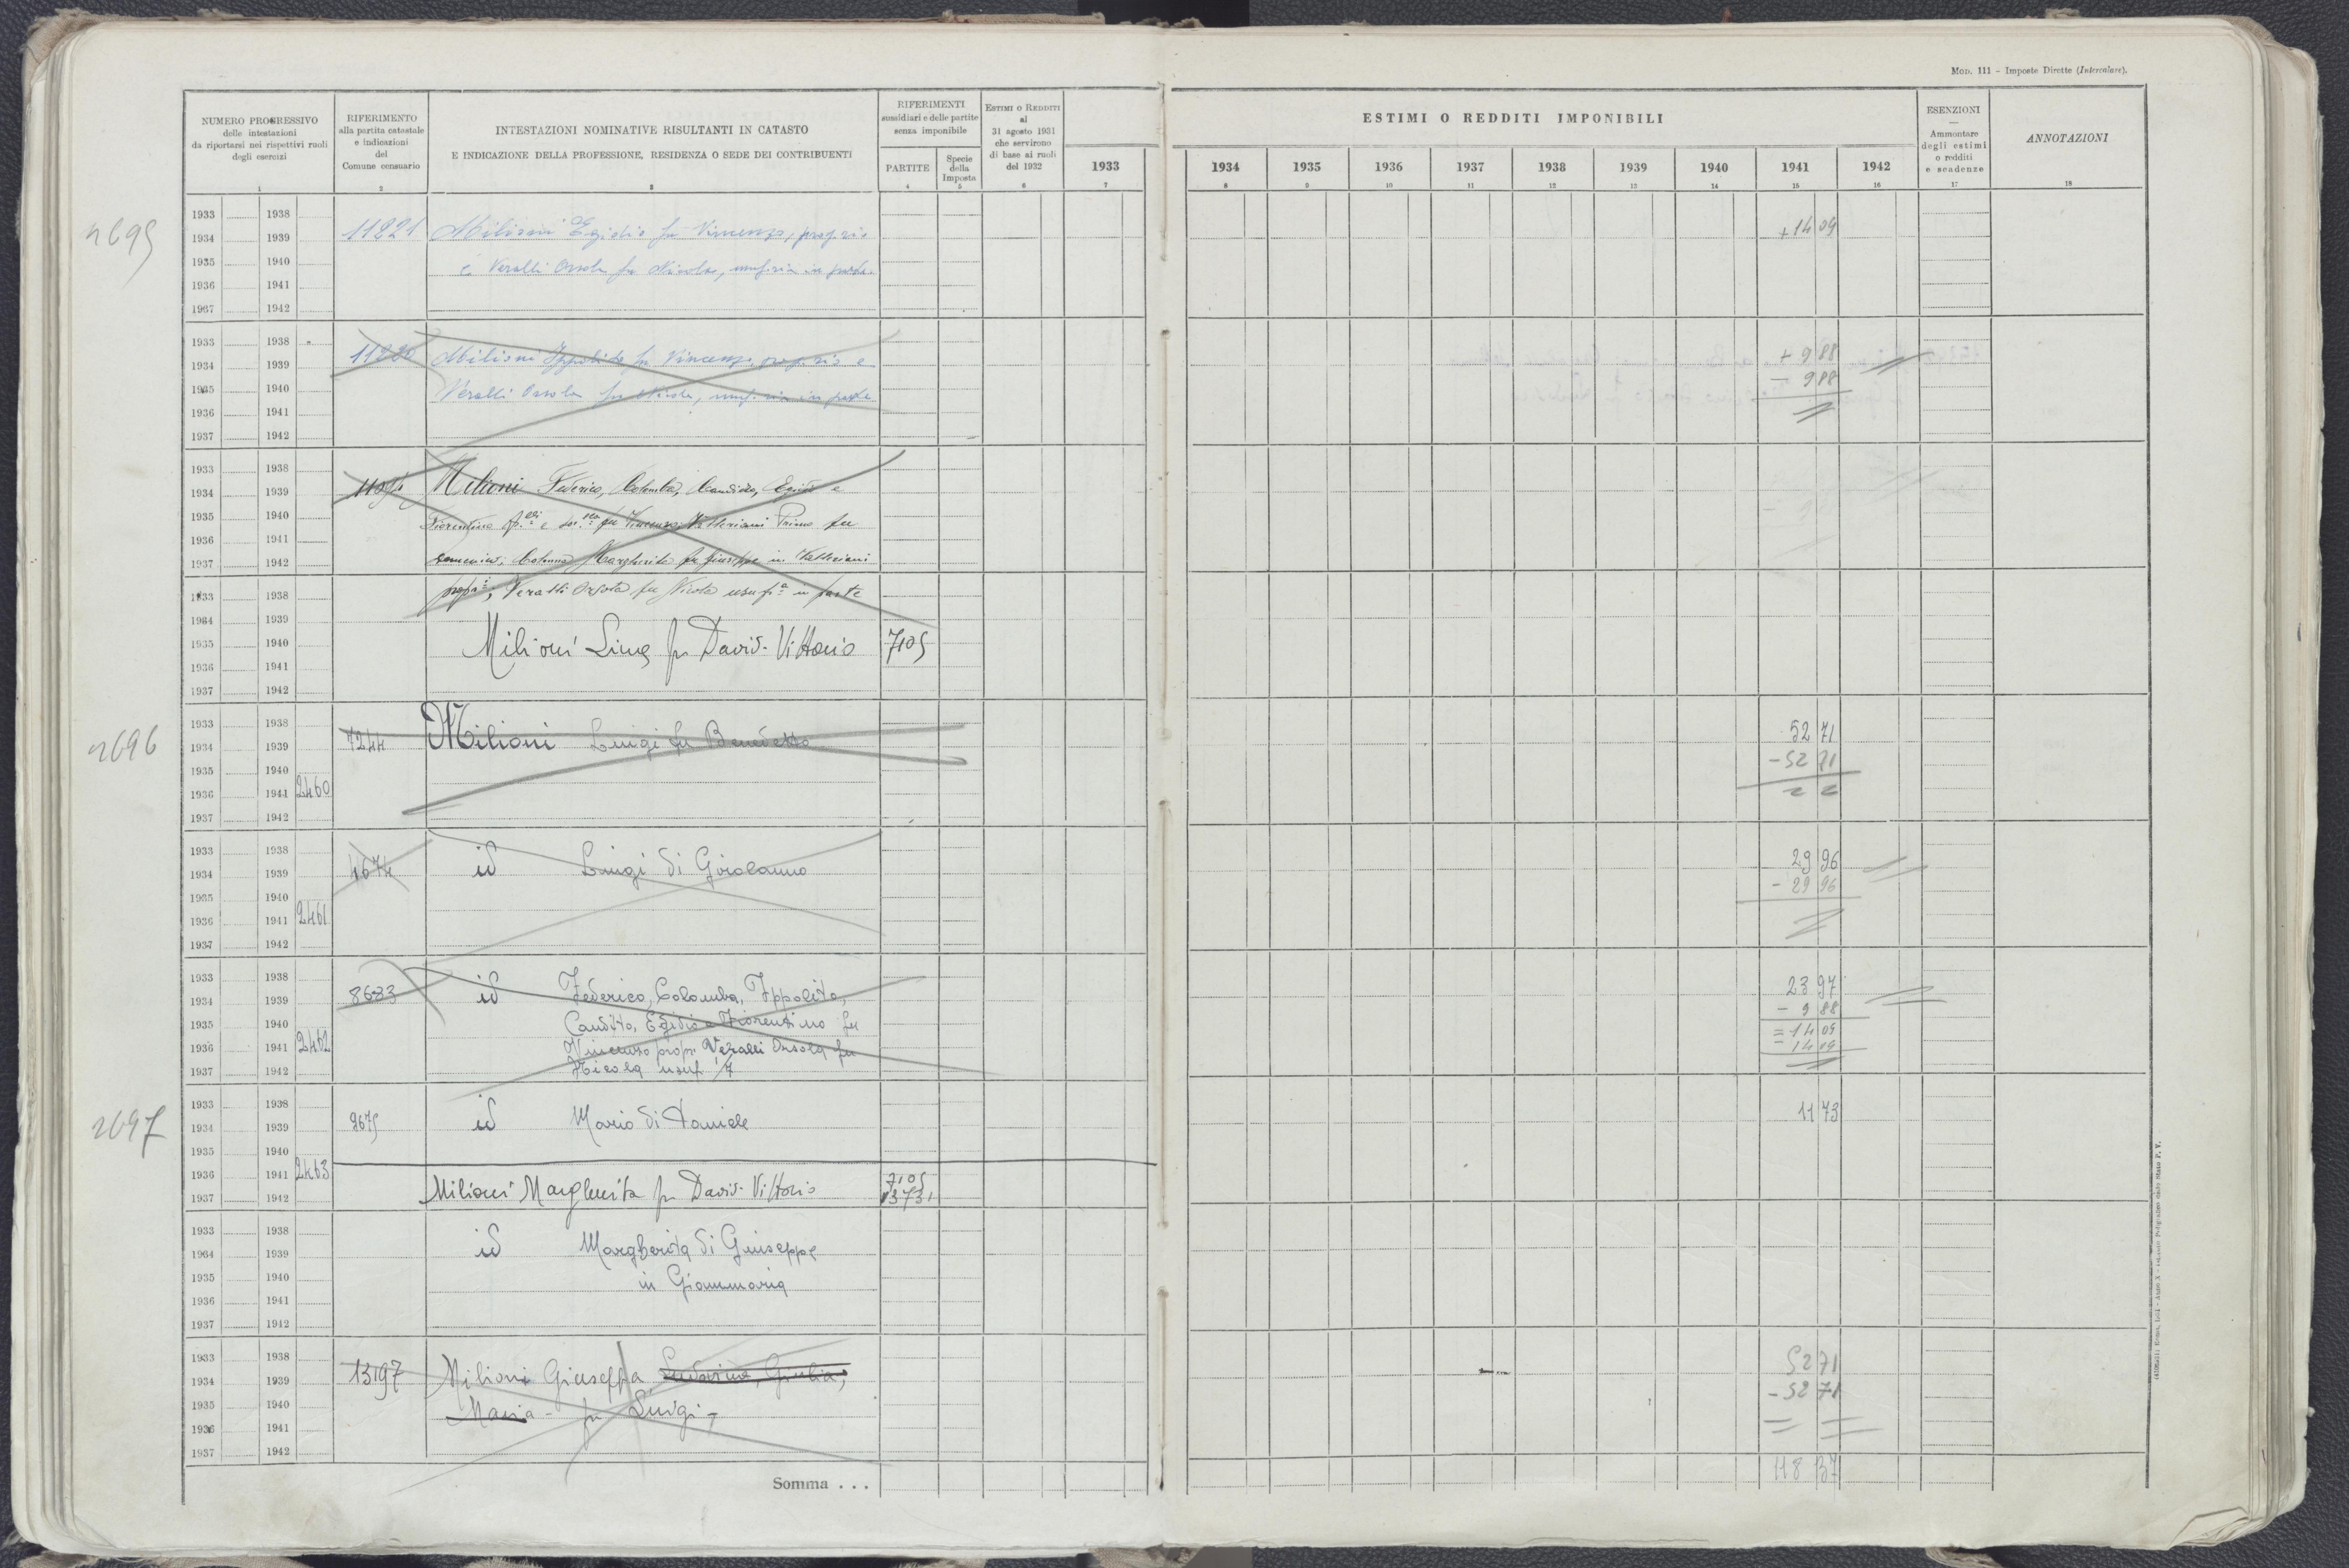 MOD. 111 – Imposte Dirette (Intercalare).
NUMERO PROGRESSIVO
delle intestazioni
da riportarsi nei rispettivi ruoli
degli esercizi
RIFERIMENTO
alla partita catastale
e indicazioni
del
Comune censuario
INTESTAZIONI NOMINATIVE RISULTANTI IN CATASTO
E INDICAZIONE DELLA PROFESSIONE, RESIDENZA O SEDE DEI CONTRIBUENTI
RIFERIMENTI
sussidiari e delle partite
senza imponibile
PARTITE
Specie
della
Imposta
ESTIMI O REDDITI
al
31 agosto 1931
che servirono
di base ai ruoli
del 1932
ESTIMI O REDDITI IMPONIBILI
1933 1934 1935 1936 1937 1938 1939 1940 1941 1942
ESENZIONI
—
Ammontare
degli estimi
o redditi
e scadenze
ANNOTAZIONI
1 2 3 4 5 6 7 8 9 10 11 12 13 14 15 16 17 18
2695
1933 1938
1934 1939 11221 Milioni Egidio fu Vincenzo, propr.rio + 14 09
1935 1940 e Veralli Orsola fu Nicola, usuf.ria in parte.
1936 1941
1937 1942
1933 1938
1934 1939 11220 Milioni Ippolito fu Vincenzo, propr.rio e + 9 88
1935 1940 Veralli Orsola fu Nicola, usuf.ria in parte – 9 88
1936 1941
1937 1942
1933 1938
1934 1939 Milioni Federico, Colomba, Candido, Egidio e
1935 1940 Fiorentino fu Vincenzo, Primo fu
1936 1941
1937 1942 Colonna Margherita fu Giuseppe in
1933 1938 Veralli Orsola fu Nicola usufr.a in parte
1934 1939
1935 1940 Milioni Lina fu David-Vittorio 7105
1936 1941
1937 1942
2696
1933 1938
1934 1939 7244 Milioni Luigi fu Benedetto 52 71
1935 1940 – 52 71
1936 1941 2460
1937 1942
1933 1938
1934 1939 4674 id Luigi di Girolamo 29 96
1935 1940 – 29 96
1936 1941 2461
1937 1942
1933 1938
1934 1939 8683 id Federico, Colomba, Ippolito, 23 97
1935 1940 Candito, Egidio e Fiorentino fu – 9 88
1936 1941 2462 Vincenzo propr. Veralli Orsola fu = 14 09
1937 1942 Nicola usuf. – 14 09
2697
1933 1938
1934 1939 2675 id Mario di Daniele 11 73
1935 1940
1936 1941 2463 Milioni Margherita fu David-Vittorio 7105
1937 1942 13731
1933 1938
1934 1939 id Margherita di Giuseppe
1935 1940 in Giammaria
1936 1941
1937 1942
1933 1938
1934 1939 13197 Milioni Giuseppa Ludovina, Giulia, 52 71
1935 1940 Maria – fu Luigi – – 52 71
1936 1941
1937 1942
Somma . . . 118 37